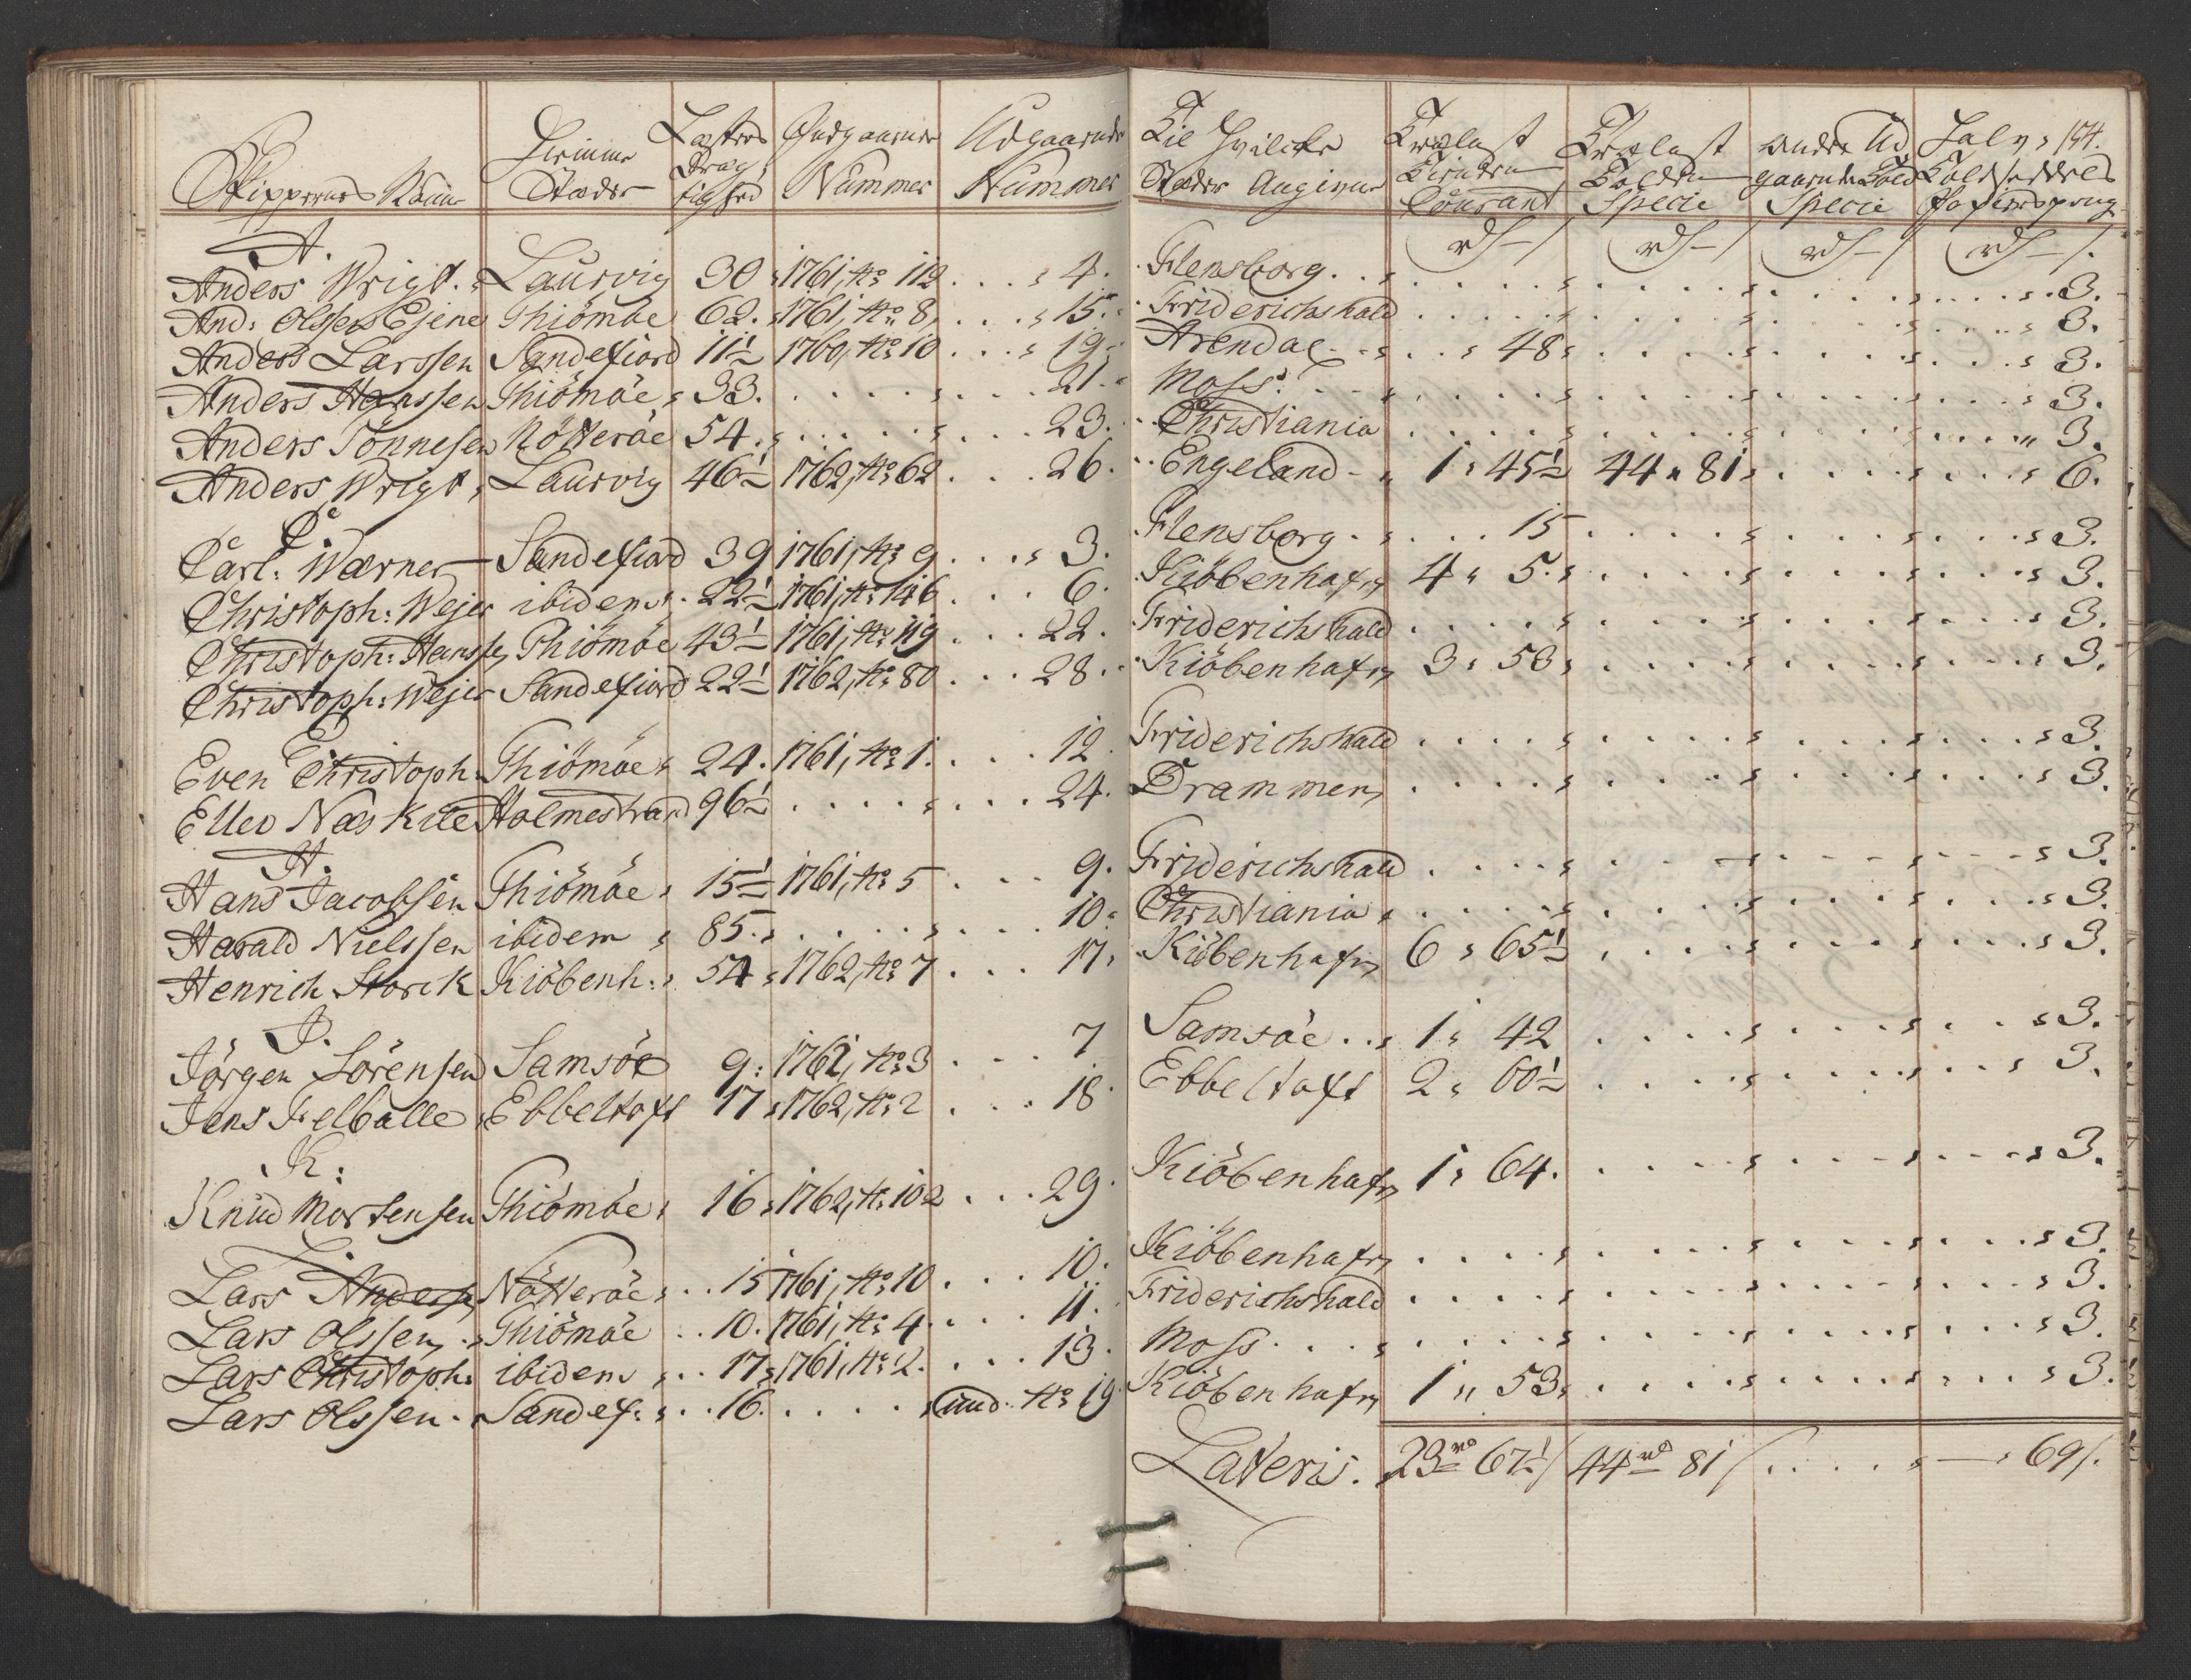 Skippernes Navne Hiemme Stæder Læsters Drægtighed Indgaaende Nummer Udgaaende Nummer Til Hvilcke Stæder Angivne Trælast Tienden Courant Trælast Tolden Specie Andre Udgaaende Told Specie Fol: 174. Toldsedlers Papiirspenge
rd - s rd - s rd - s rd - s.
A.
Anders Wrigt. Laurvig 30 1761, No 112 4. Flensborg 3.
And: Olssen Ejene Thiömöe 62. 1761, No 8, 15. Friderichshald 3.
Anders Larssen Sandefiord 11½ 1760, No 10 19 Arendal 48 3.
Anders Hanssen Thiömöe 33. 21. Moss 3.
Anders Tönnesen Nötteröe 54. 23. Christiania 3.
Anders Wrigt, Laurvig 46½ 1762, No 62 26. Engeland 1 45½ 44 81 6.
C
Carl: Wærner Sandefiord 39 1761, No 9 3. Flensborg 15 3.
Christoph: Wejer ibidem 22½ 1761, No 146 6. Kiöbenhafn 4 5. 3.
Christoph: Hanssen Thiömöe 43½ 1761, No 119 22. Friderichshald 3.
Christoph: Wejer Sandefiord 22½ 1762, No 80 28. Kiöbenhafn 3 53 3.
E
Even Christoph: Thiömöe 24. 1761, No 1. 12 Friderichshald 3.
Ellev Næs Kile Holmestrand 96½ 24. Drammen 3.
H.
Hans Jacobsen Thiömöe 15½ 1761, No 5 9. Friderichshald 3.
Harald Nielssen ibidem 85. 10 Christiania 3.
Henrich Storck Kiöbenh: 54 1762, No 7 17 Kiöbenhafn 6 65½ 3.
J.
Jörgen Sörensen Samsöe 9: 1762, No 3 7 Samsöe 1 42 3.
Jens Felballe Ebbeltoft 17 1762, No 2 18 Ebbeltoft 2 60½ 3.
K:
Knud Mortensen Thiömöe 16 1762, No 102 29 Kiöbenhafn 1 64. 3.
L.
Lars Anderssen Nötteröe 15 1761, No 10 10. Kiöbenhafn 3.
Lars Olssen Thiömöe 10. 1761, No 4. 11. Friderichshald 3.
Lars Christoph: ibidem 17 1761, No 2. 13. Moss 3.
Lars Olssen. Sandef: 16. und. No 19 Kiöbenhafn 1 53 3.
Lateris. 23 rd 67½ s 44 rd 81 s 69 s.